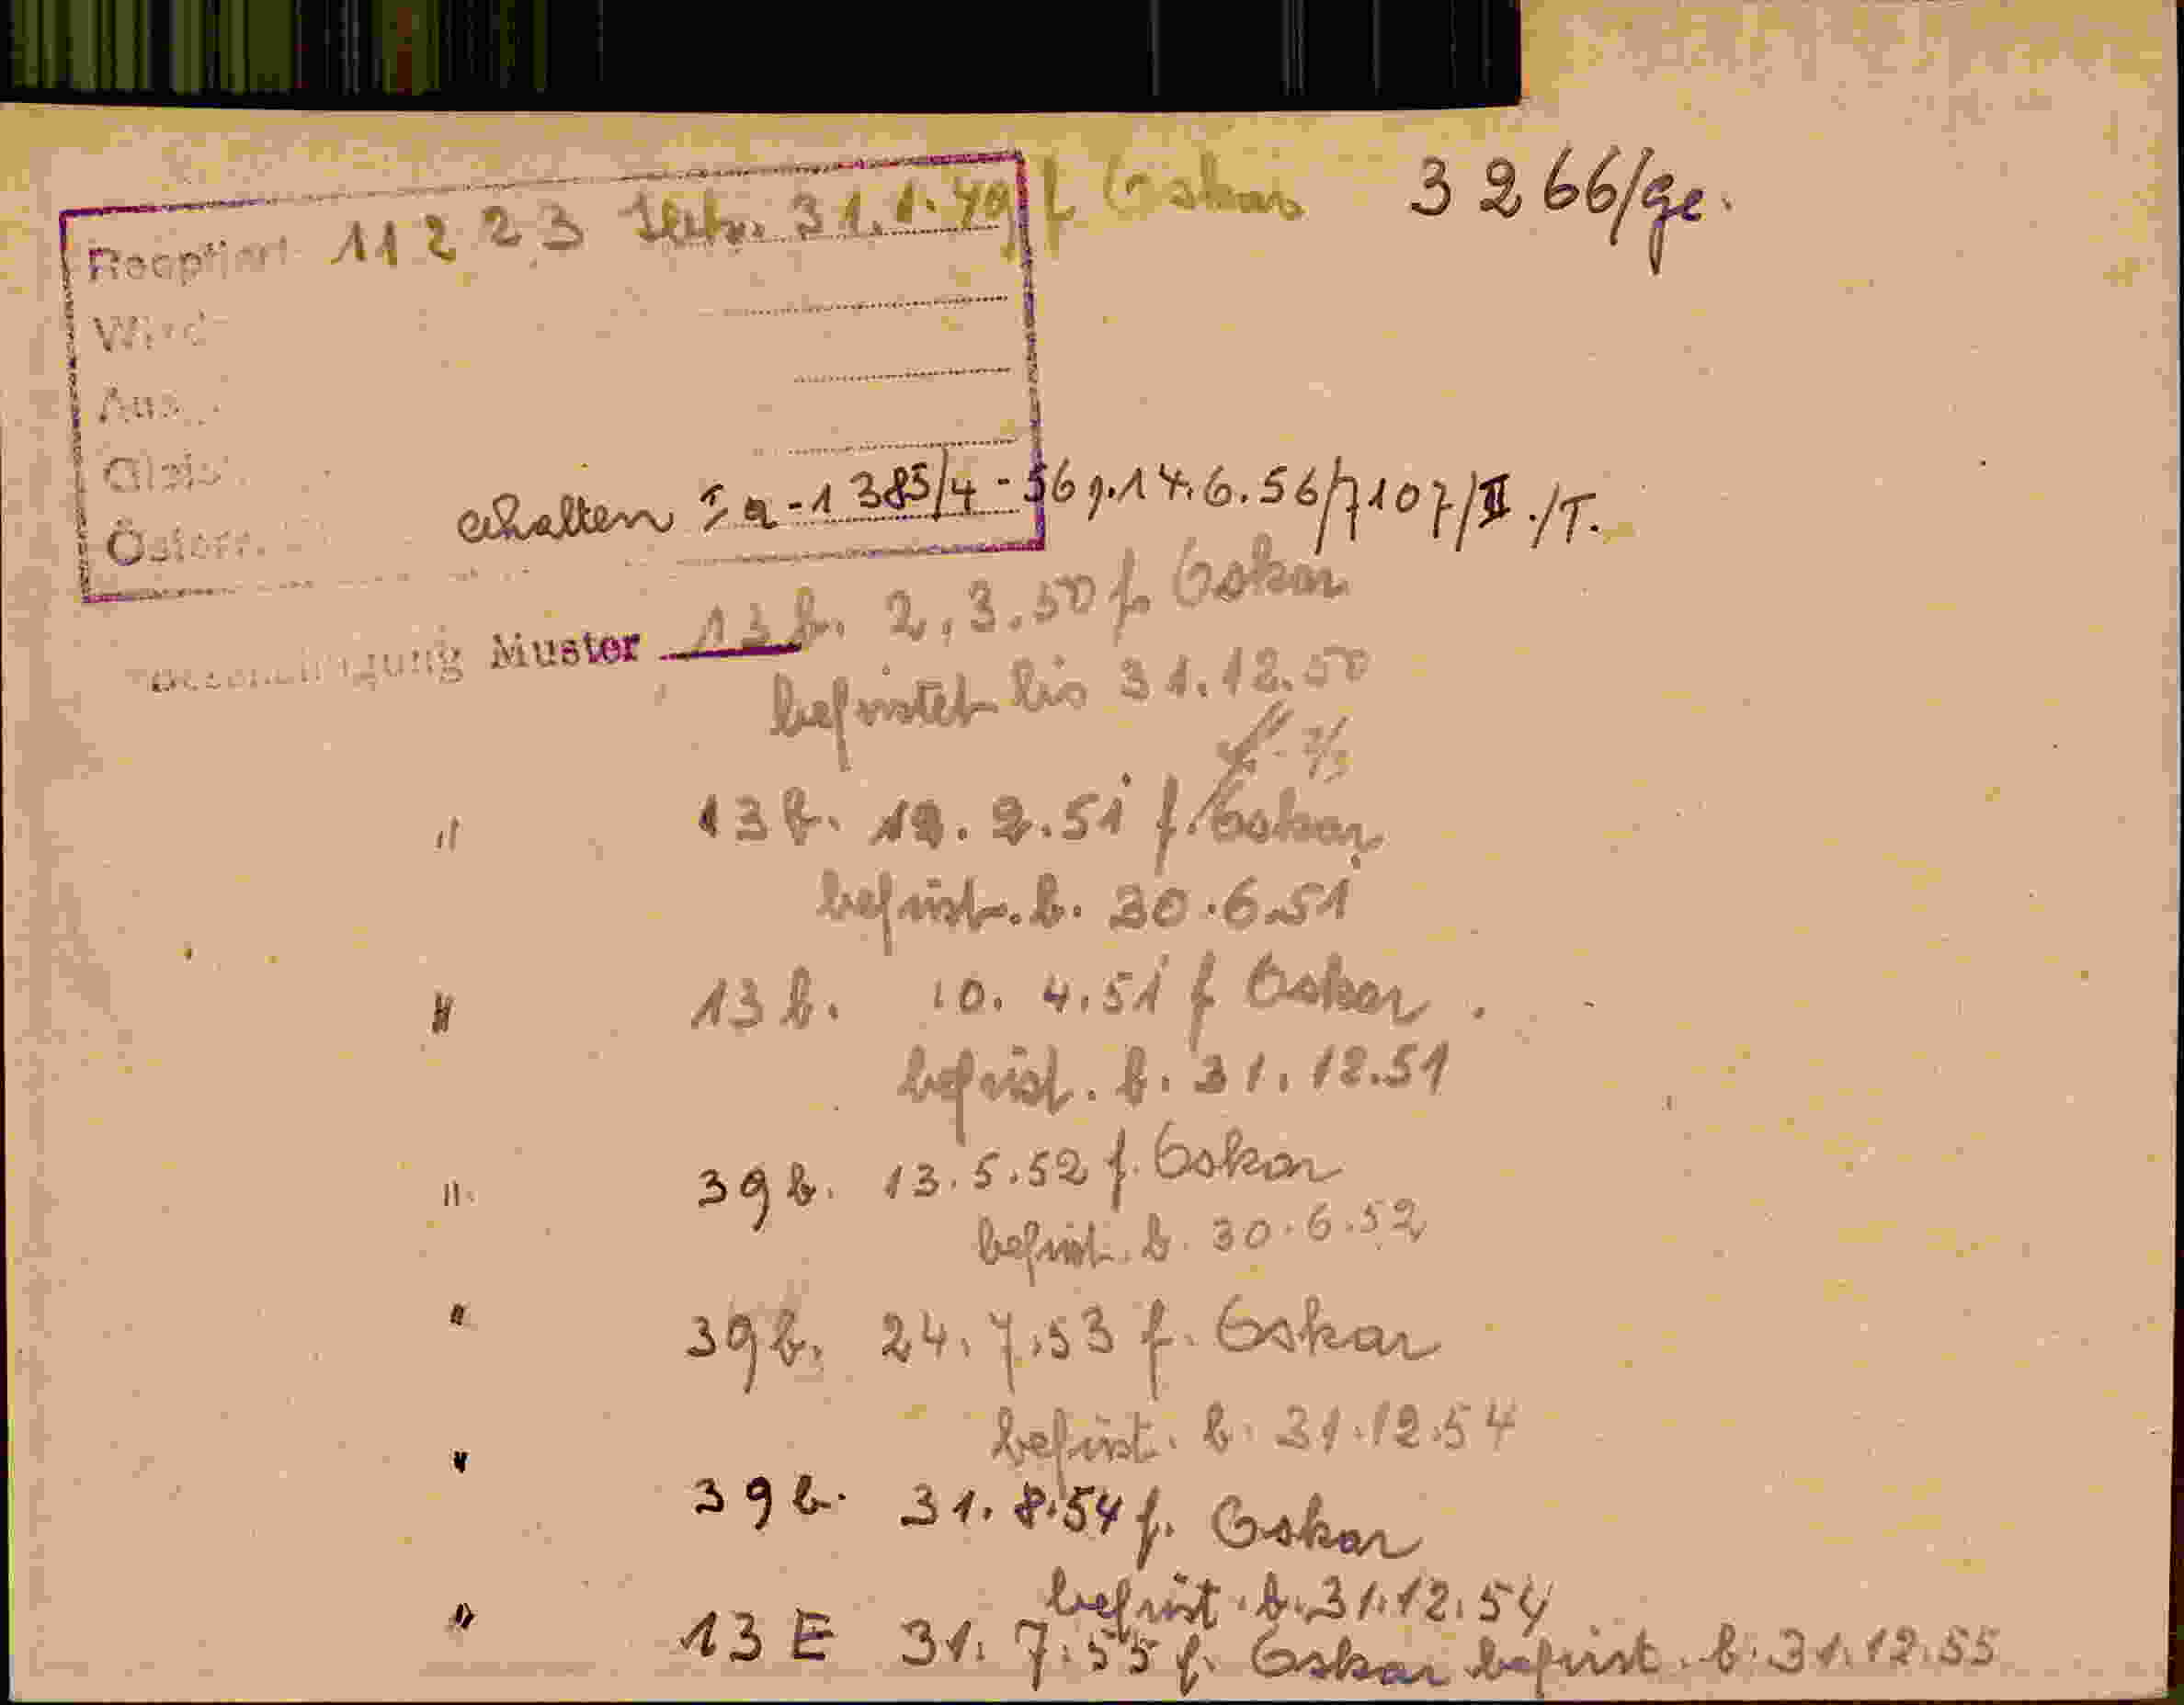 Reoptiert 11 2 2 3 31.1.49 f Oskar 3 2 66/ge.
Wird
Aus
Gleis
Österr. erhalten I a - 1 385/4 - 56 v. 14.6.56/7107/II./T.
Muster 13 b. 2.3.50 f. Oskar
befristet bis 31.12.50
2/3
" 13 b. 12.2.51 f. Oskar
befrist. b. 30.6.51
" 13 b. 10. 4.51 f Oskar.
befrist. b. 31.12.51
" 39 b. 13.5.52 f. Oskar
befrist. b. 30.6.52
" 39 b. 24.7.53 f. Oskar
befrist. b. 31.12.54
" 39 b. 31.8.54 f. Oskar
befrist. b. 31.12.54
" 13 E 31.7.55 f. Oskar befrist. b. 31.12.55